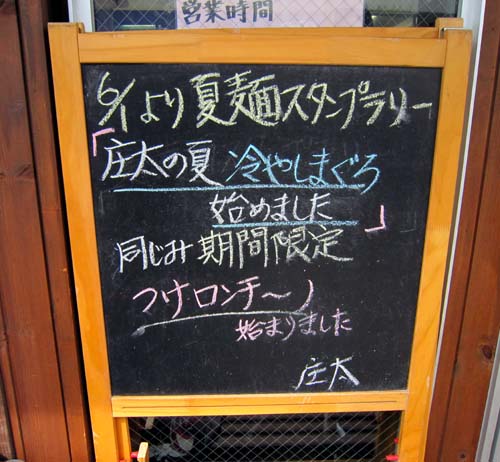 営業時間
6/1より夏麺スタンプラリー
「庄太の夏 冷やしまぐろ
始めました」
同じみ期間限定
つけロンチ〜ノ
始まりました
庄太